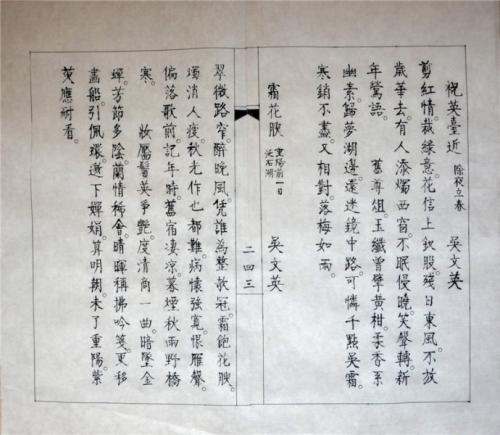 祝英臺近 除夜立春 吳文英
剪紅情。裁綠意。花信上釵股。殘日東風。不放
歲華去。有人添燭西窗。不眠侵曉。笑聲轉。新
年鶯語。 舊尊俎。玉纖曾擘黃柑。柔香系
幽素。歸夢湖邊。還迷鏡中路。可憐千點吳霜。
寒銷不盡。又相對。落梅如雨。
霜花腴 重陽前一日泛石湖 吳文英
二四三
翠微路窄。醉晚風。凭誰為整欹冠。霜飽花腴。
燭消人瘦。秋光作也都難。病懷強寬。恨雁聲。
偏落歌前。記年時。舊宿淒涼。暮煙秋雨野橋
寒。 妝靨鬢英爭艷。度清商一曲。暗墜金
蟬。芳節多陰。蘭情稀會。晴暉稱拂吟箋。更移
畫船。引佩環。邀下嬋娟。算明朝。未了重陽。紫
萸應耐看。